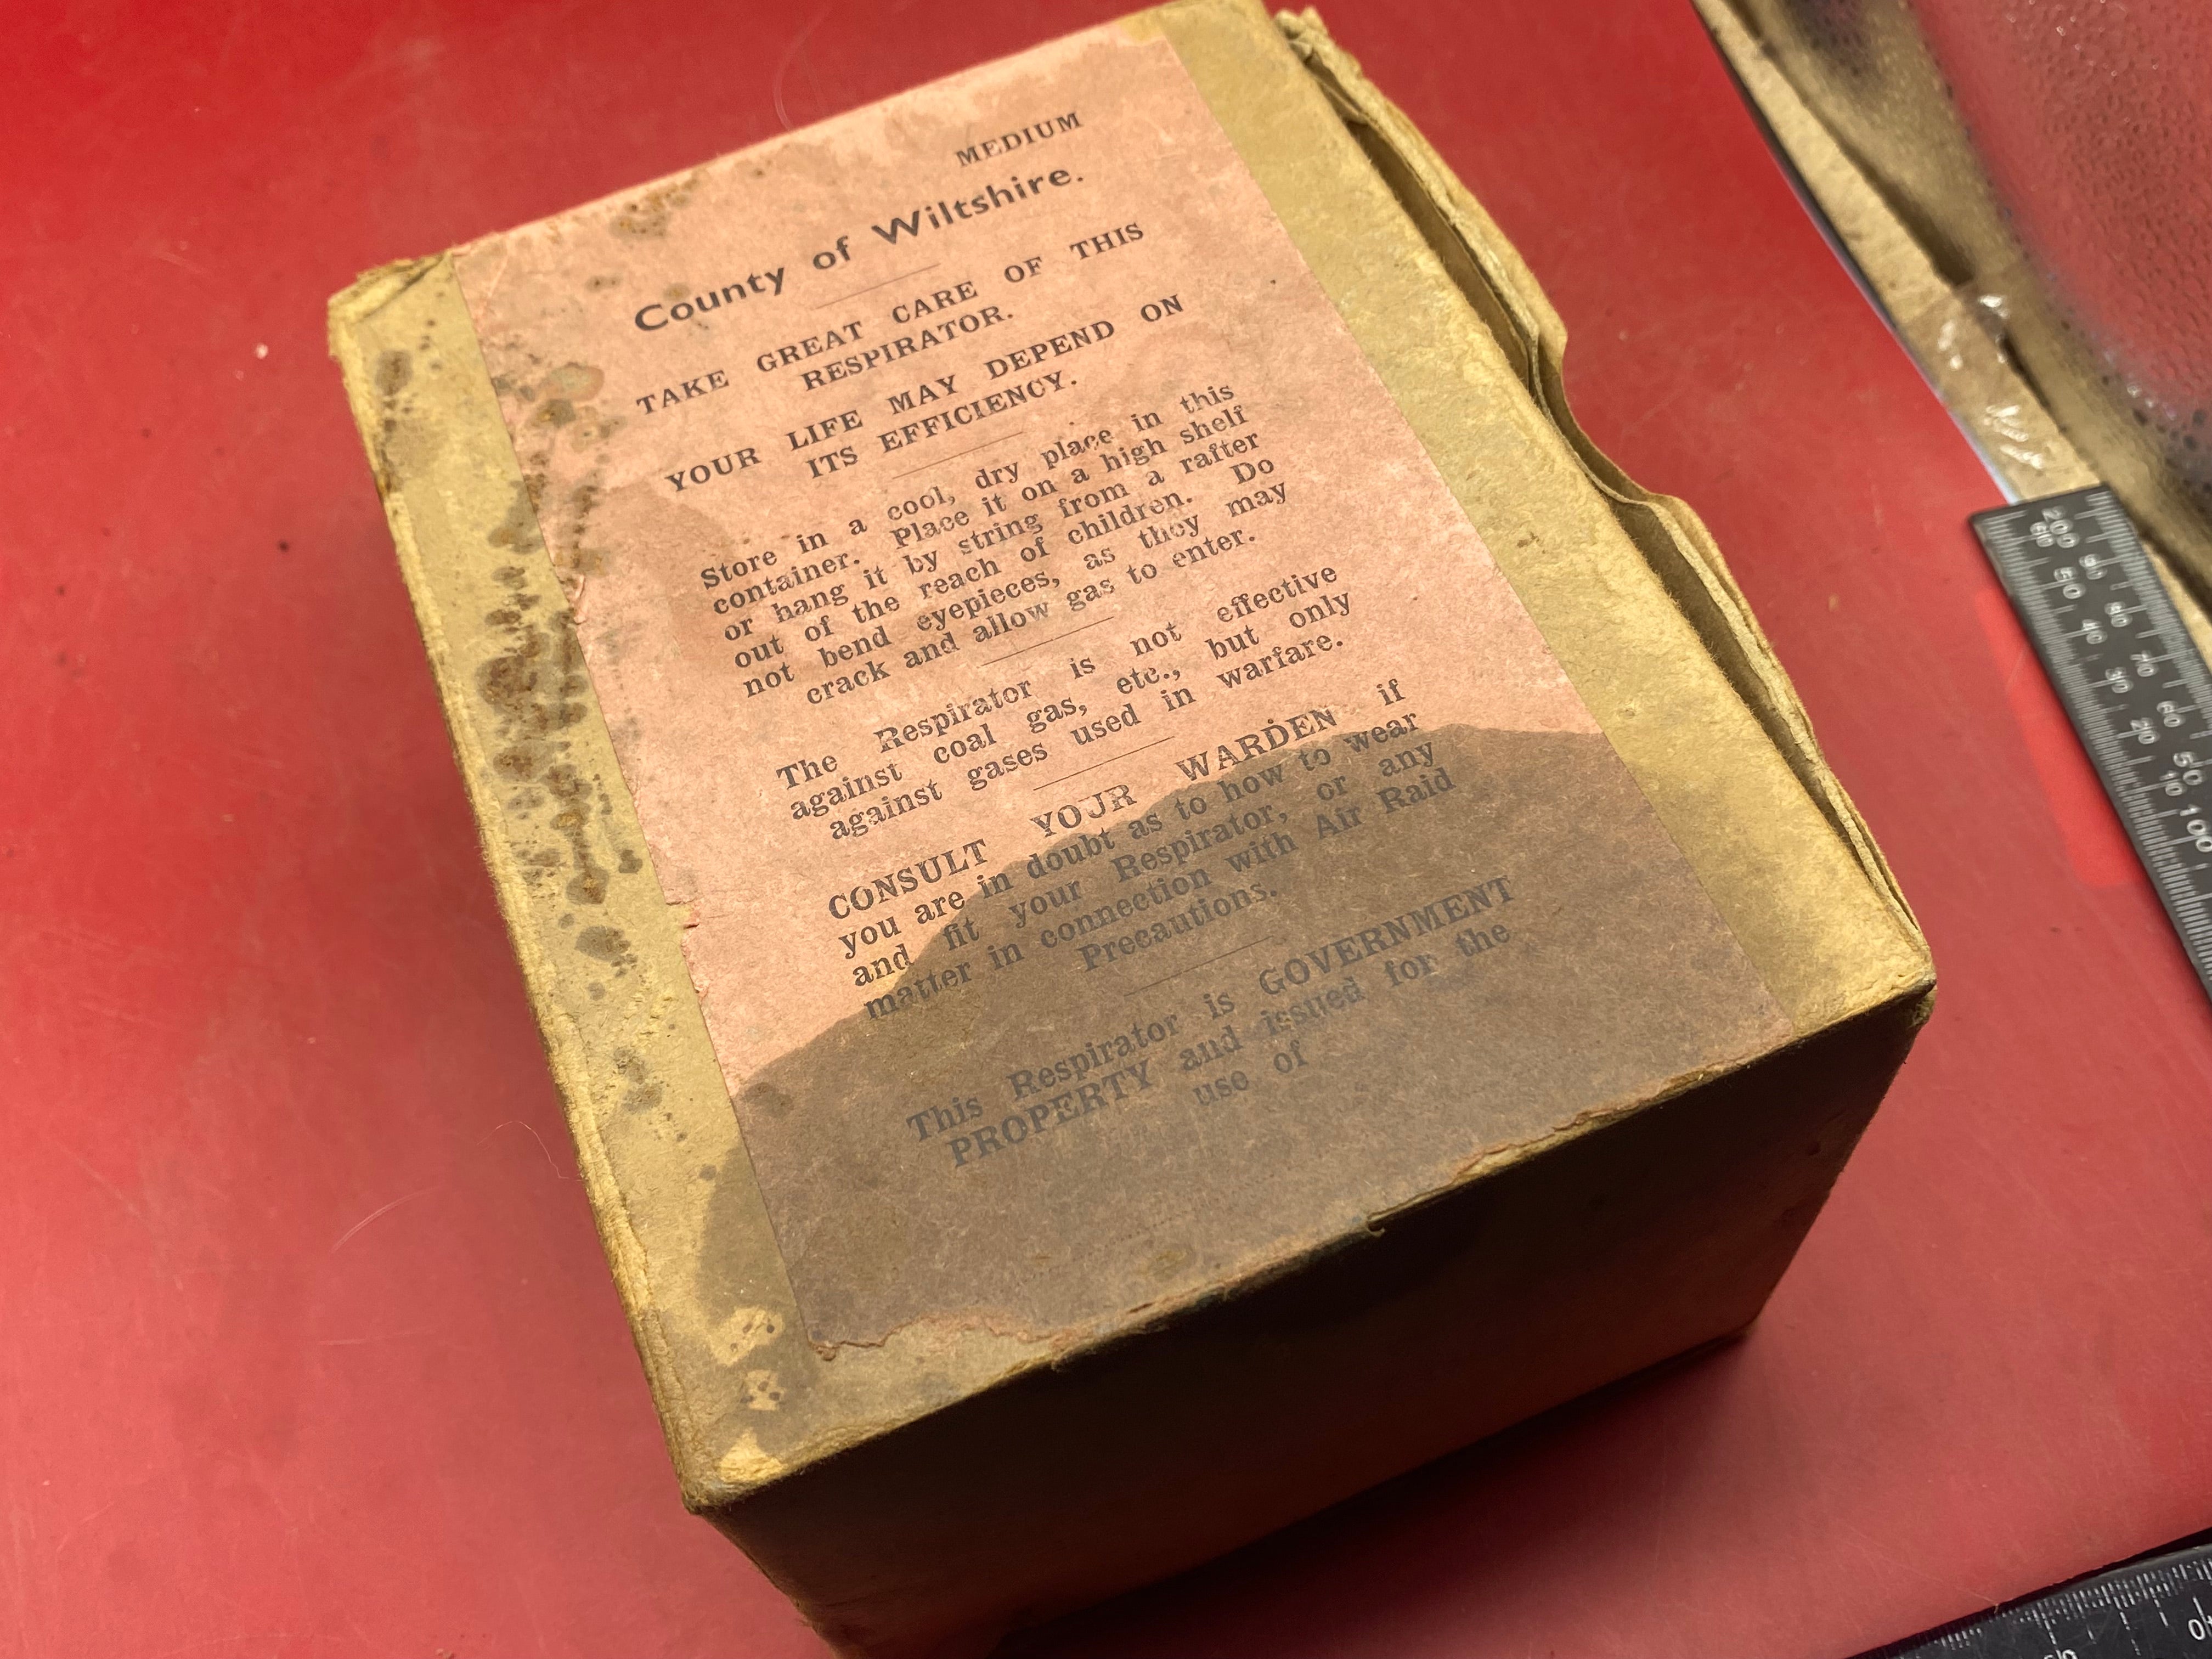 MEDIUM
County of Wiltshire.
TAKE GREAT CARE OF THIS
RESPIRATOR.
YOUR LIFE MAY DEPEND ON
ITS EFFICIENCY.
Store in a cool, dry place in this
container. Place it on a high shelf
or hang it by string from a rafter
out of the reach of children. Do
not bend eyepieces, as they may
crack and allow gas to enter.
The Respirator is not effective
against coal gas, etc., but only
against gases used in warfare.
CONSULT YOUR WARDEN if
you are in doubt as to how to wear
and fit your Respirator, or any
matter in connection with Air Raid
Precautions.
This Respirator is GOVERNMENT
PROPERTY and issued for the
use of
200
60
90
50
80
40
70
30
60
20
50
10
100